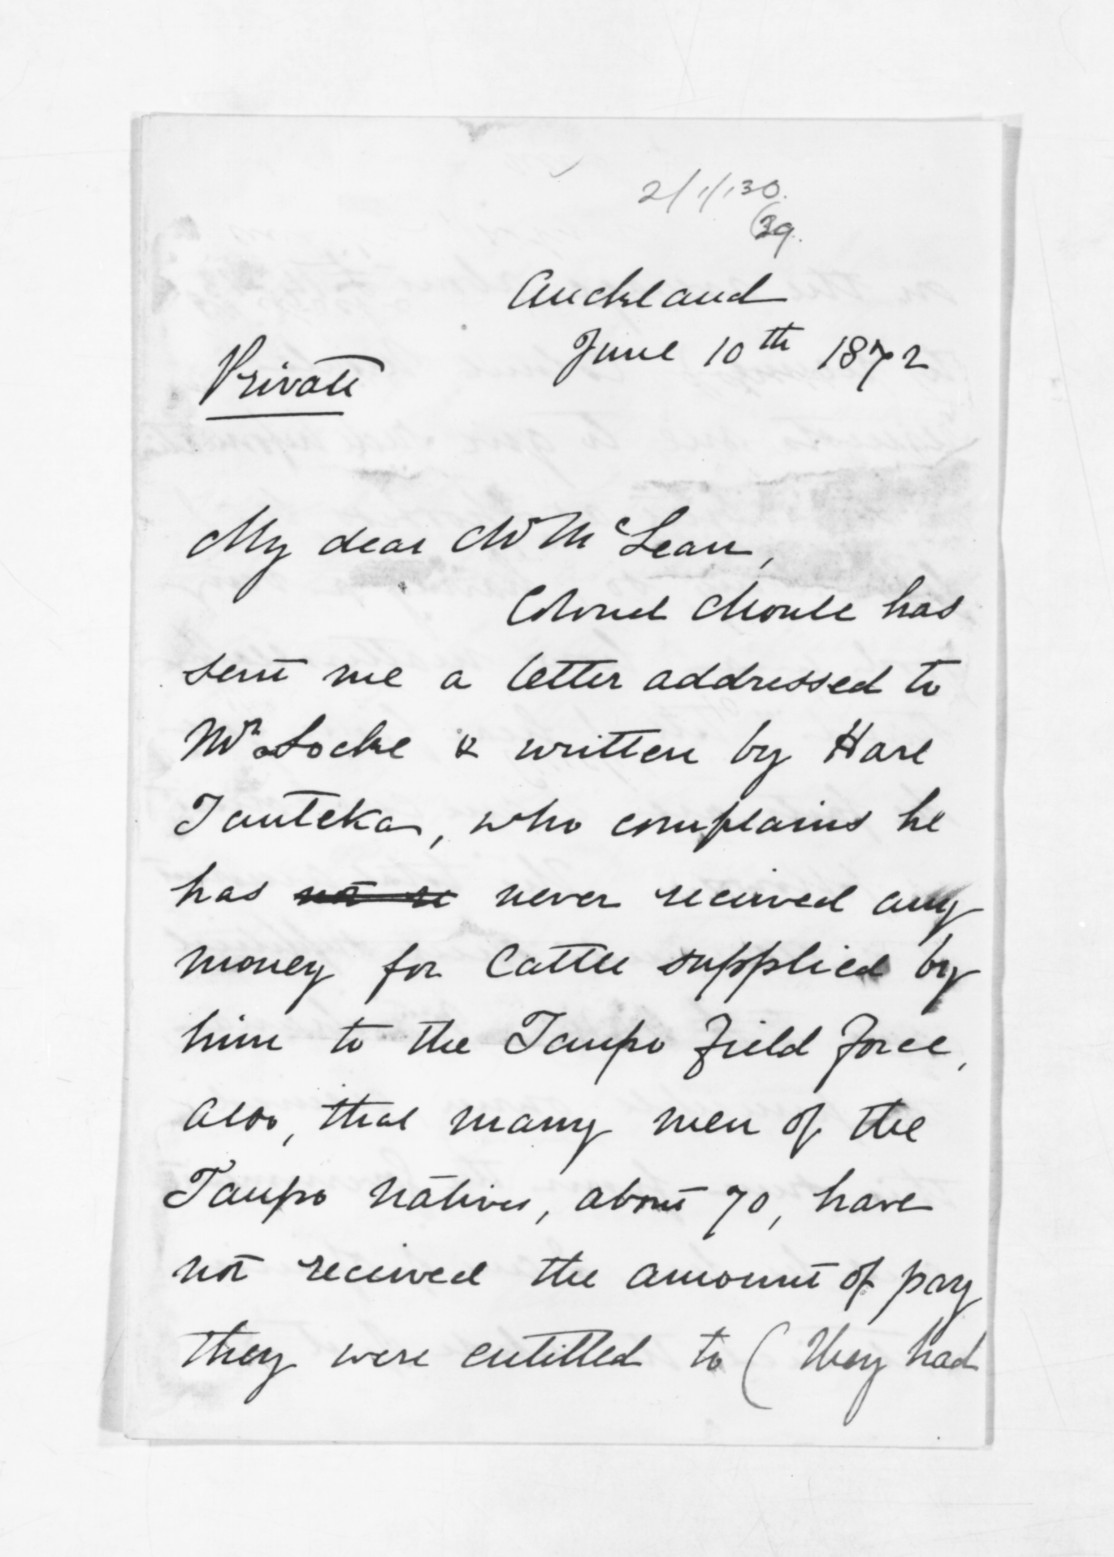 2/1/130.
(39.
Auckland
June 10th 1872
Private
My dear Mr McLean,
Colonel Moule has
sent me a letter addressed to
Mr Locke & written by Hare
Tauteka, who complains he
has not re never received any
money for Cattle supplied by
him to the Taupo Field Force,
also, that many men of the
Taupo Natives, about 70, have
not received the amount of pay
they were entitled to (They had